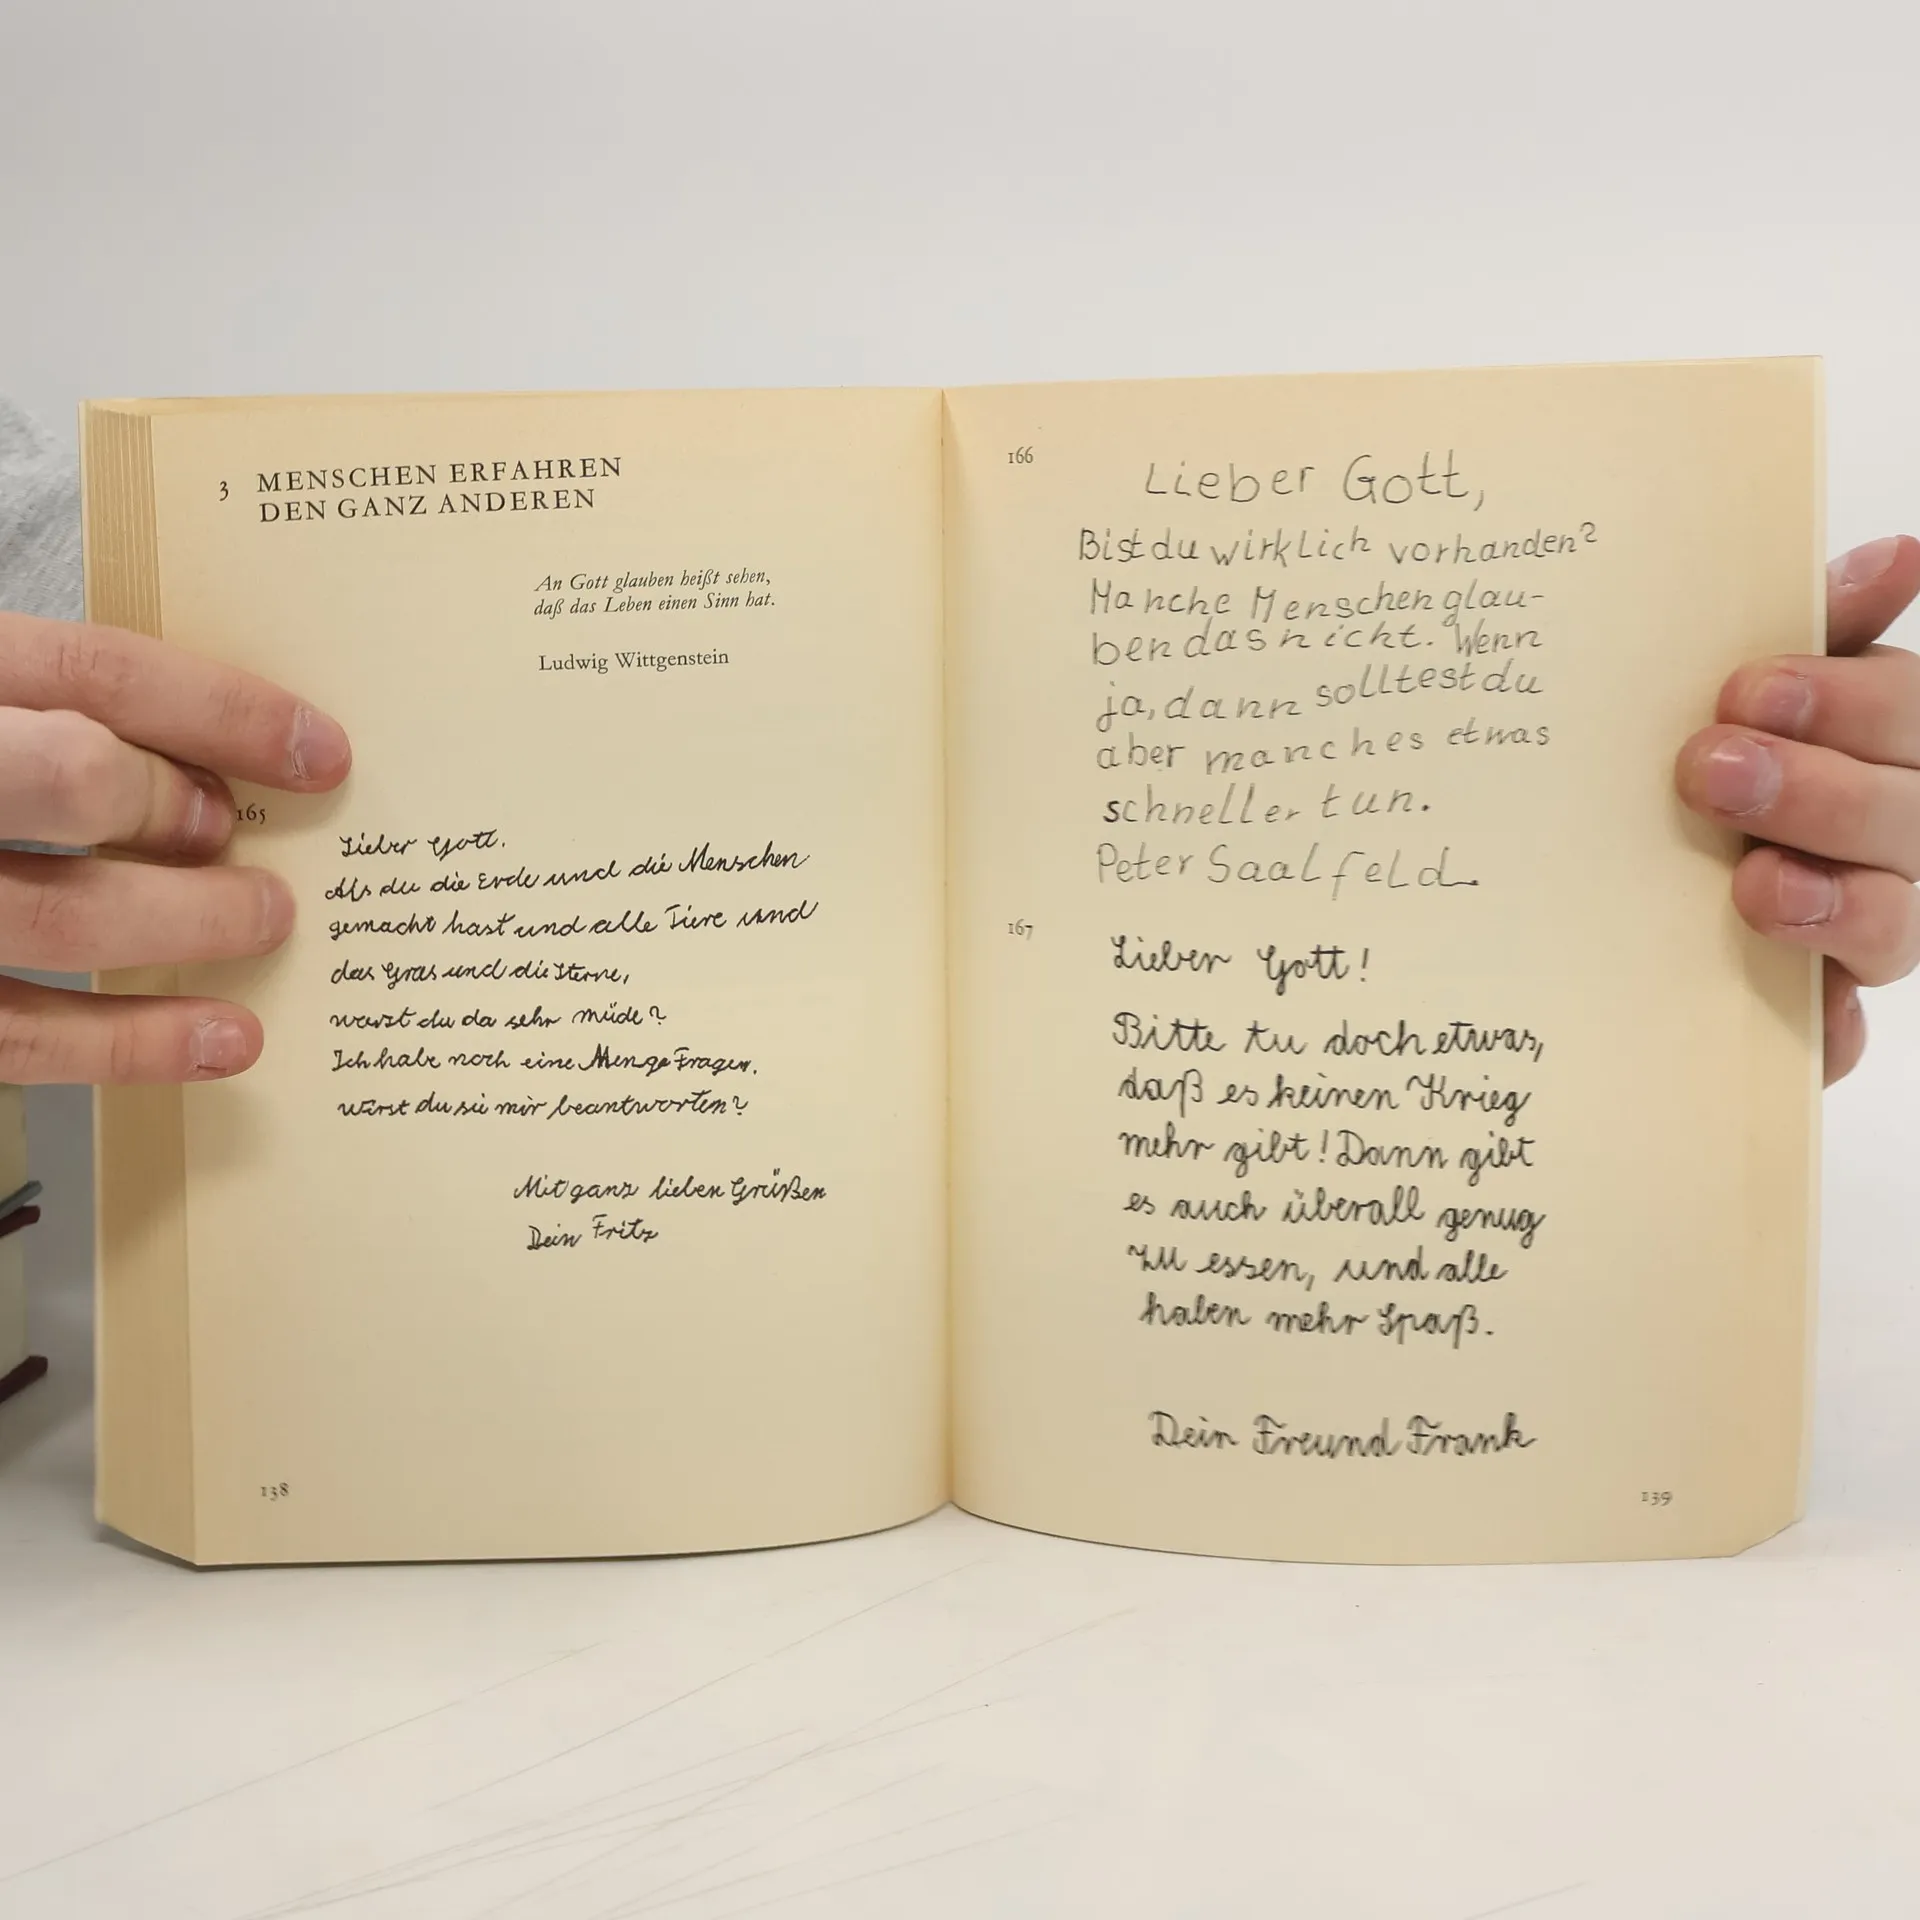 3 MENSCHEN ERFAHREN
DEN GANZ ANDEREN
An Gott glauben heißt sehen,
daß das Leben einen Sinn hat.
Ludwig Wittgenstein
165
Lieber Gott.
Als du die Erde und die Menschen
gemacht hast und alle Tiere und
das Gras und die Sterne,
warst du da sehr müde?
Ich habe noch eine Menge Fragen.
wirst du sie mir beantworten?
Mit ganz lieben Grüßen
Dein Fritz
138
166
Lieber Gott,
Bist du wirklich vorhanden?
Manche Menschen glau-
ben das nicht. Wenn
ja, dann solltest du
aber manches etwas
schneller tun.
Peter Saalfeld.
167
Lieber Gott!
Bitte tu doch etwas,
daß es keinen Krieg
mehr gibt! Dann gibt
es auch überall genug
zu essen, und alle
haben mehr Spaß.
Dein Freund Frank
139